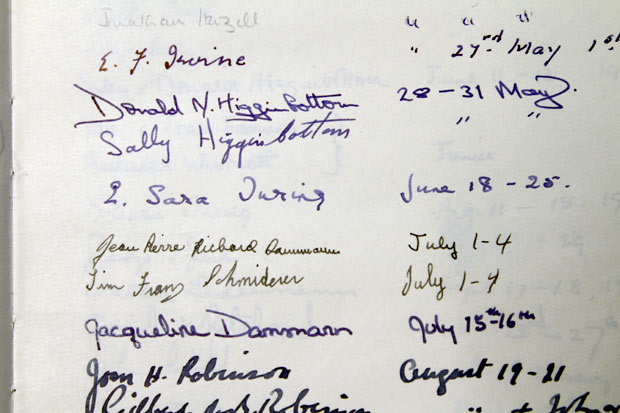 Jonathan " " "
E. F. Irvine " 27nd May 1st
Donald N. Higginbottom 28-31 May.
Sally Higginbottom " "
E. Sara Turing June 18-25.
Jean Pierre Richard Dammann July 1-4
Tim Franz Schmiderer July 1-4
Jacqueline Dammann July 15th-16th
Joan H. Robinson August 19-21
Gilbert de B. Robinson " "